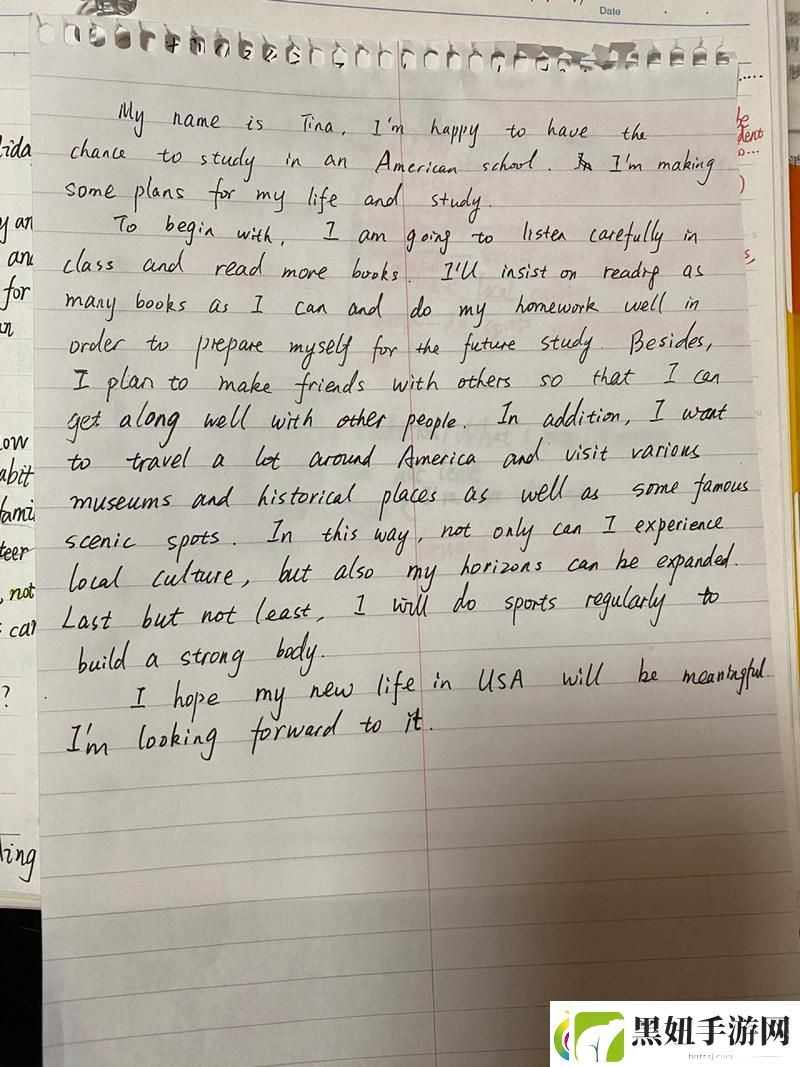 Date
My name is Tina. I'm happy to have the
chance to study in an American school. I'm making
some plans for my life and study.
To begin with, I am going to listen carefully in
class and read more books. I'll insist on readig as
many books as I can and do my homework well in
order to prepare myself for the future study. Besides,
I plan to make friends with others so that I can
get along well with other people. In addition, I want
to travel a lot around America and visit various
museums and historical places as well as some famous
scenic spots. In this way, not only can I experience
local culture, but also my horizons can be expanded.
Last but not least, I will do sports regularly to
build a strong body.
I hope my new life in USA will be meaningful
I'm looking forward to it.
黑妞手游网